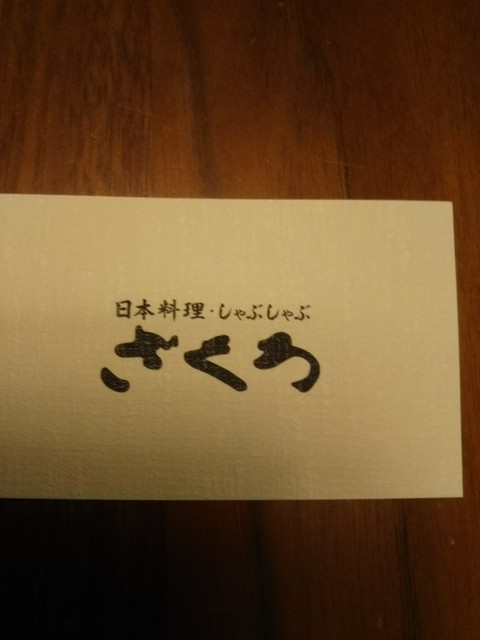 日本料理・しゃぶしゃぶ
ざくろ